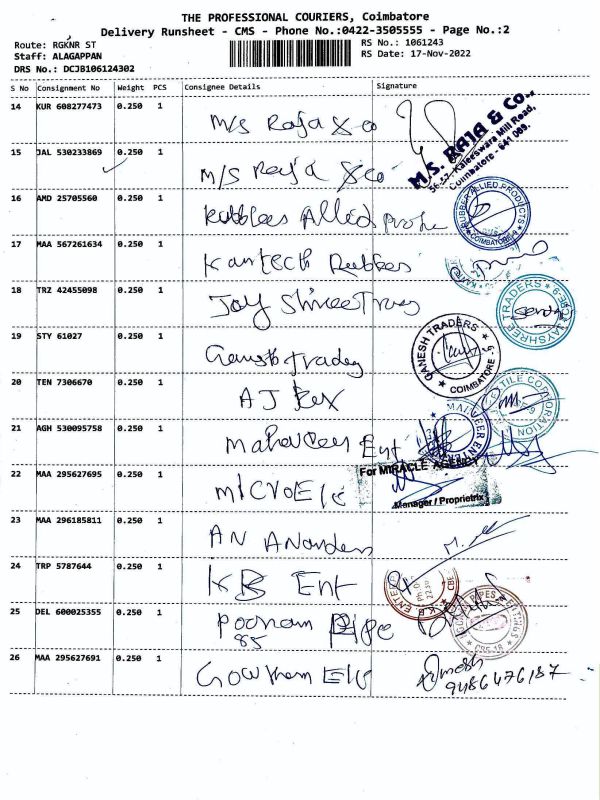 THE PROFESSIONAL COURIERS, Coimbatore
Delivery Runsheet - CMS - Phone No.:0422-3505555 - Page No.:2
Route: RGKNR ST
RS No.: 1061243
Staff: ALAGAPPAN
RS Date: 17-Nov-2022
DRS No.: DCJB106124302
S No Consignment No Weight PCS Consignee Details Signature
14 KUR 608277473 0.250 1 M/s Raja & Co
M.S. RAJA & Co.,
56-57, Kaleeswara Mill Road,
Coimbatore - 641 009.
15 JAL 530233869 0.250 1 M/S Raja & co
16 AMD 25705560 0.250 1 Rubbers Allied
RUBBER ALLIED PRODUCTS
COIMBATORE-9
17 MAA 567261634 0.250 1 Kantech Rubbers
18 TRZ 42455098 0.250 1 Jay Shree
JAYSHREE TRADERS CBE-9
19 STY 61027 0.250 1 Ganesh Traders
GANESH TRADERS
COIMBATORE - 9
20 TEN 7306670 0.250 1 AJ Rex
TEXTILE CORPORATION
21 AGH 530095758 0.250 1 Mahaveer Ent
MAHAVEER ENTER
For MIRACLE AGENCY
22 MAA 295627695 0.250 1 Micro Ele
Manager / Proprietrix
23 MAA 296185811 0.250 1 AN Anandan
24 TRP 5787644 0.250 1 KB Ent
K.B. ENTER CBE
25 DEL 600025355 0.250 1 Poonam Pipe
85
PIPES FITTINGS
CBE-18
26 MAA 295627691 0.250 1 Gowtham Ele
Umesh
9486476187